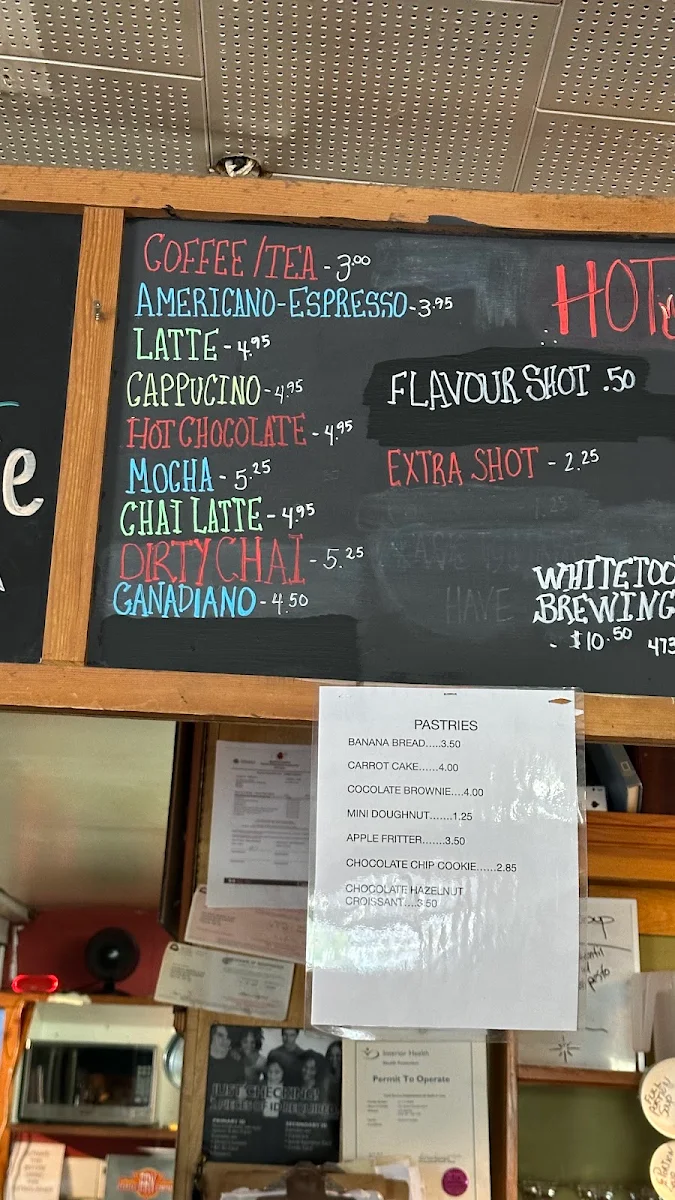 COFFEE/TEA - 3.00
AMERICANO-ESPRESSO-3.95
LATTE - 4.95
CAPPUCINO-4.95
HOT CHOCOLATE - 4.95
MOCHA - 5.25
CHAI LATTE - 4.95
DIRTY CHAI - 5.25
CANADIANO - 4.50
HOT
FLAVOUR SHOT .50
EXTRA SHOT - 2.25
1.25
HAVE
WHITETOO
BREWING
- $10.50 473
e
PASTRIES
BANANA BREAD.....3.50
CARROT CAKE......4.00
COCOLATE BROWNIE....4.00
MINI DOUGHNUT.......1.25
APPLE FRITTER.......3.50
CHOCOLATE CHIP COOKIE......2.85
CHOCOLATE HAZELNUT
CROISSANT....3.50
JUST CHECKING!
2 PIECES OF ID REQUIRED
PRIMARY ID
SECONDARY ID
Interior Health
Permit To Operate
pesto